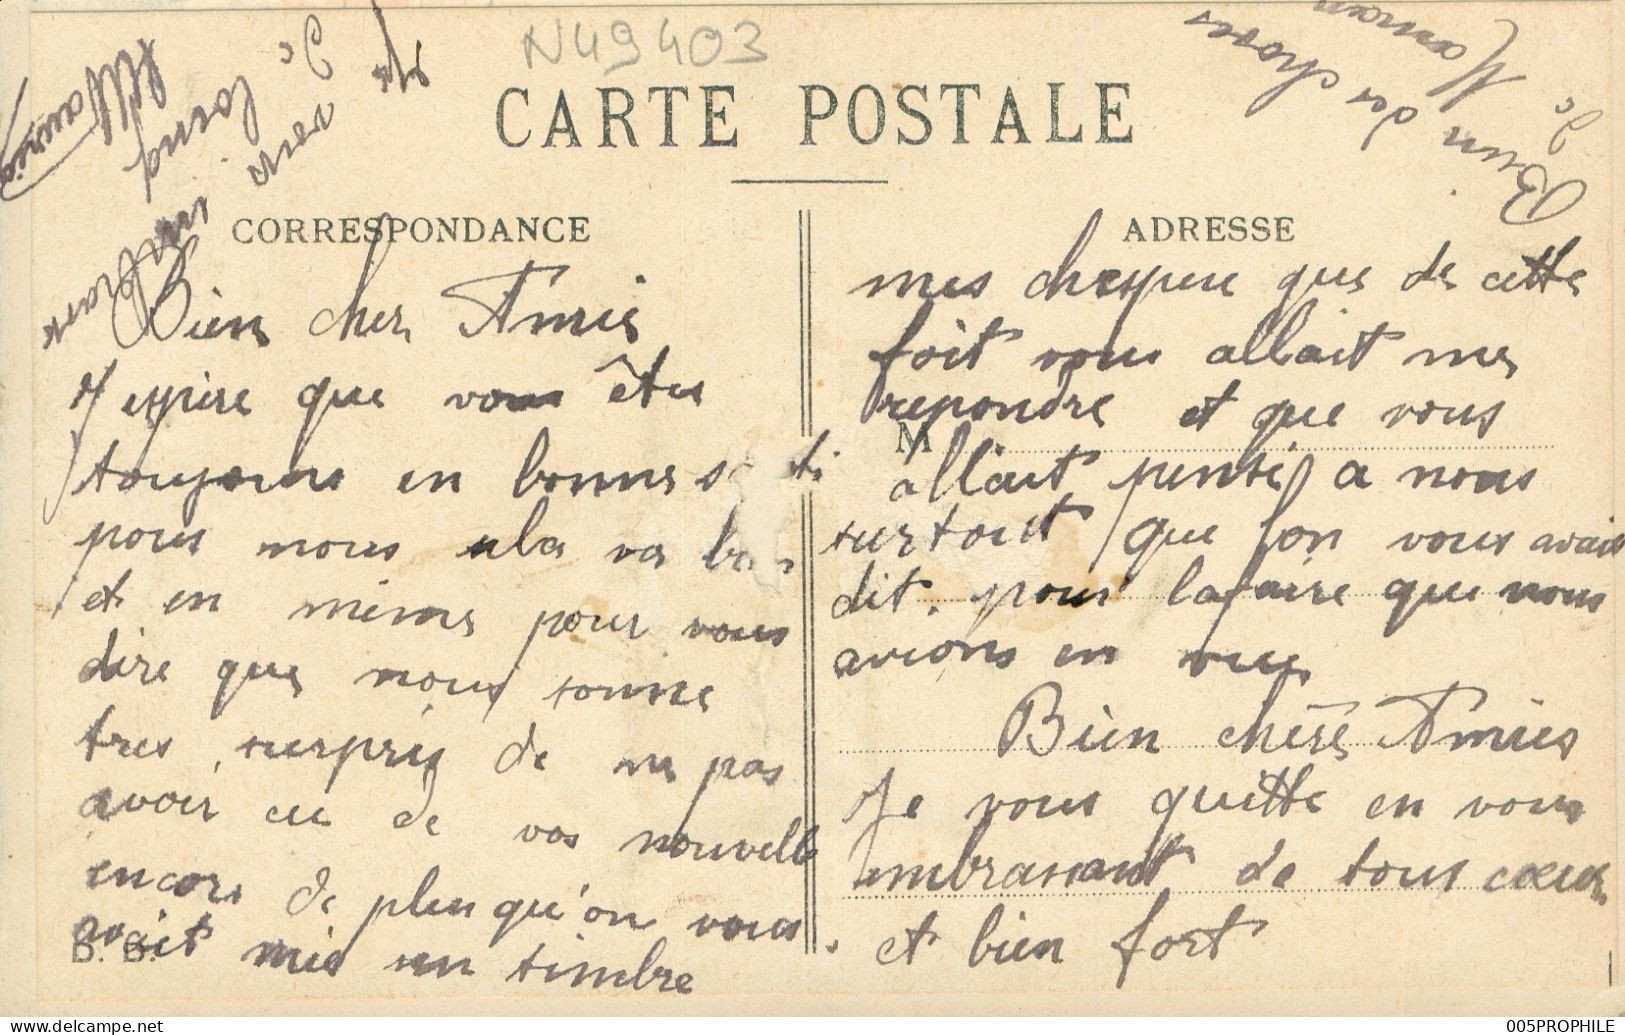 N49403
CARTE POSTALE
CORRESPONDANCE
ADRESSE
Bien cher Amie
J'espère que vous êtes
toujours en bonne
pour nous sla va
et en mème pour vous
dire que nous somme
tres surpris de ne pas
avoir eu de vos nouvelle
encore de plus qu'on vous
avait mis un timbre
B. B.
M
mes que de cette
foit vous allait me
repondre et que vous
allait pensé a nous
surtout que l'on vous avais
dit. pour lafaire que nous
avions en vue
Bien chère Amies
Je vous quitte en vous
embrassant de tous cœur
et bien fort
Bien des choses
de
Maman
de
vous voir
long
005PROPHILE